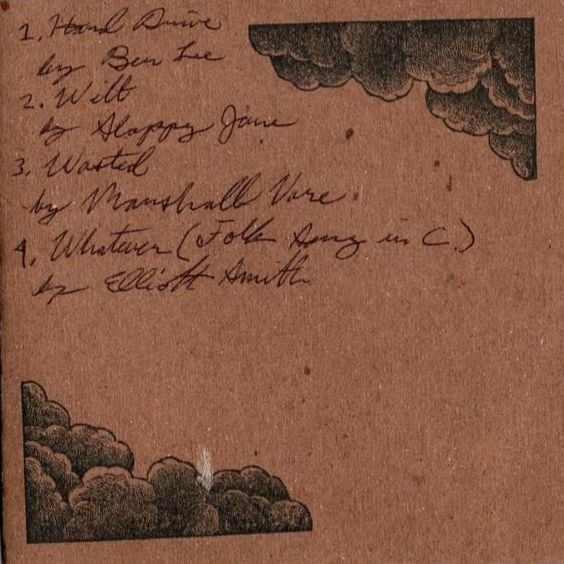 1. Hard Drive
by Ben Lee
2. Wilt
by Sloppy Jane
3. Wasted
by Marshall Vore
4. Whatever (Folk Song in C.)
by Elliott Smith